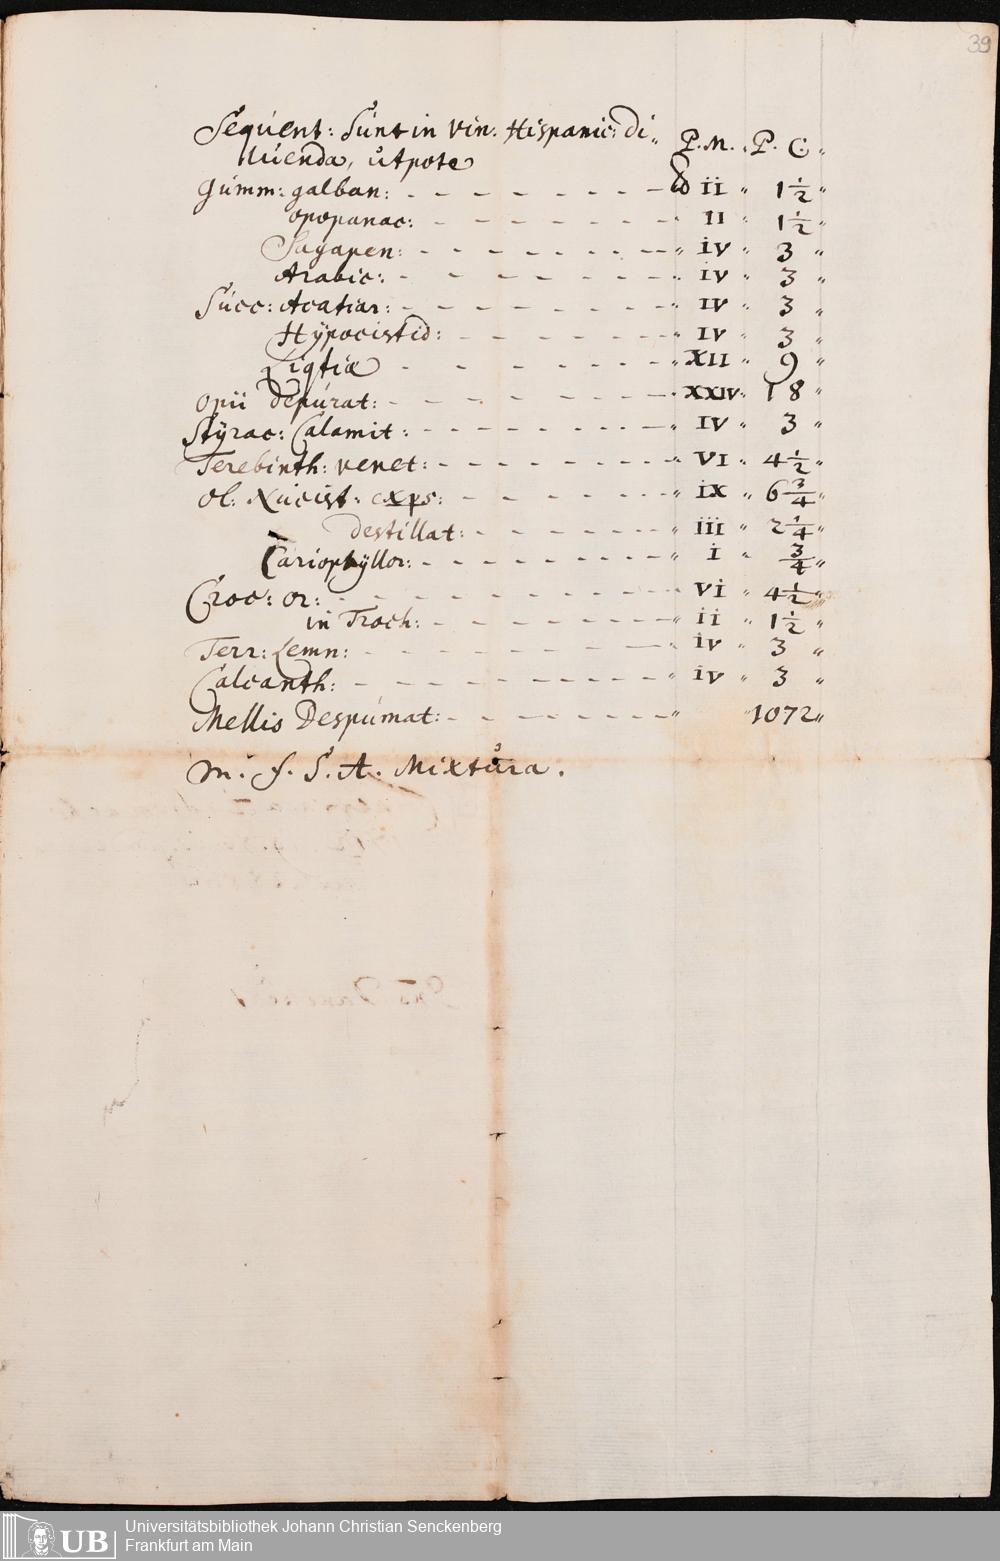 39
Sequent: Sunt in Vin: Hispanic: di„ P. M. „ P. C. „
luenda, utpote
Gumm: galban: – – – – – – – – ℥ ii „ 1½ „
opopanac: – – – – – – – „ II „ 1½ „
Sagapen: – – – – – – – – „ iv „ 3 „
Arabic: – – – – – – – „ iv „ 3 „
Succ: Acatiar: – – – – – – – – „ iv „ 3 „
Hÿpocistid: – – – – – – – „ iv „ 3 „
Liqtiæ – – – – – – – „ XII „ 9 „
opii depurat: – – – – – – – – „ XXIV „ 18 „
Stÿrac: Calamit: – – – – – – – – „ iv „ 3 „
Terebinth: venet: – – – – – – – – „ VI „ 4½ „
Ol: Nucist: exps: – – – – – – – „ ix „ 6¾ „
destillat: – – – – – – – „ iii „ 2¼ „
Cariophÿllor: – – – – – – – – „ i „ ¾ „
Croc: or: – – – – – – – – – „ vi „ 4½ „
in Troch: – – – – – – – – „ ii „ 1½ „
Terr: Lemn: – – – – – – – – „ iv „ 3 „
Calcanth: – – – – – – – – – „ iv „ 3 „
Mellis Despumat: – – – – – – – „ „ 1072 „
m. f. S. A. Mixtura.
UB Universitätsbibliothek Johann Christian Senckenberg
Frankfurt am Main